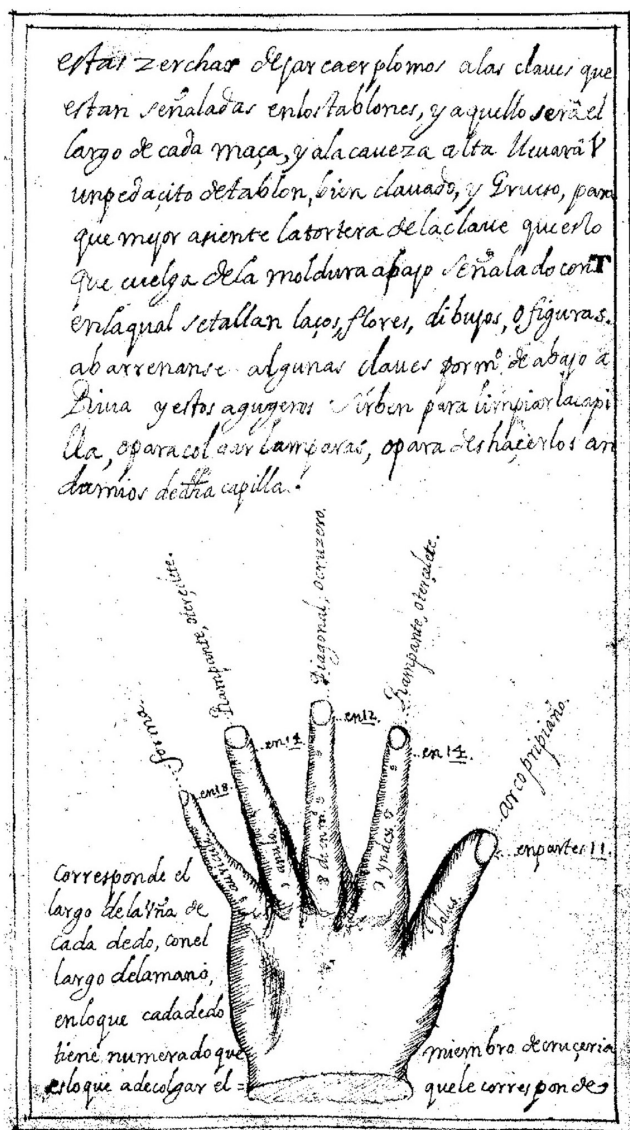 estas zerchas dejar caer plomos a las claves que
estan señaladas en los tablones, y aquello serâ el
largo de cada maça, y a la caveza alta llevarâ V
un pedaçito de tablon, bien clavado, y grueso, para
que mejor asiente la tortera de la clave que es lo
que cuelga de la moldura abajo señalado con T
en la qual se tallan laços, flores, dibujos, o figuras.
abarrenanse algunas claves por mº. de abajo a
Riva y estos agugeros sirben para limpiar la capi
lla, o para colgar lamparas, o para deshaçer los an
damios de dha capilla.
forma.
Rampante, o terçelete.
Diagonal, o cruzero.
Rampante, o terçelete.
arco pripiaño.
en 18.
en 14.
en 12.
en 14.
en partes 11.
auricular
anular
Polus
Corresponde el
largo de la Vña de
cada dedo, con el
largo de la mano,
en lo que cada dedo
tiene numerado que
es lo que a de colgar el =
miembro de cruçeria
que le corresponde